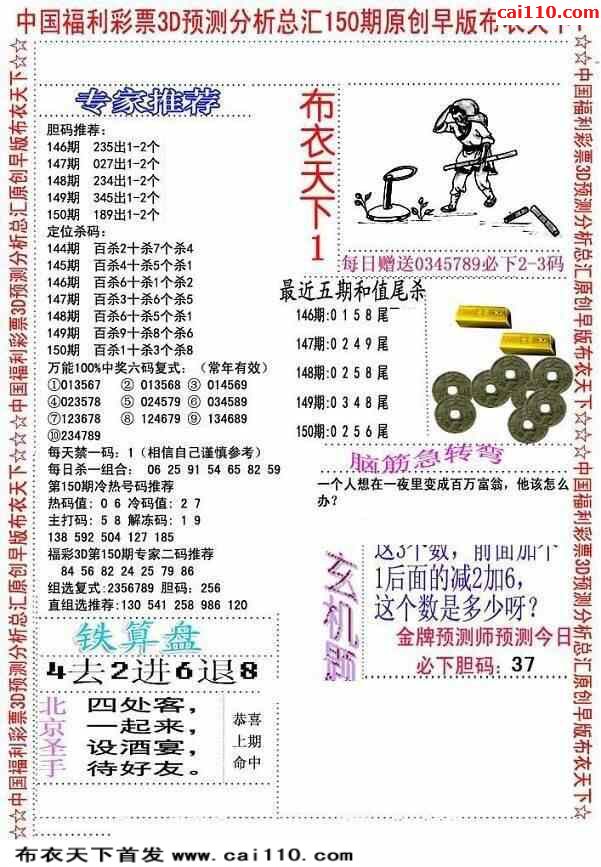 cai110.com
中国福利彩票3D预测分析总汇150期原创早版布衣天下
☆☆中国福利彩票3D预测分析总汇原创早版布衣天下☆☆中国福利彩票3D预测分析总汇原创早版布衣天下☆
专家推荐
胆码推荐:
146期 235出1-2个
147期 027出1-2个
148期 234出1-2个
149期 345出1-2个
150期 189出1-2个
定位杀码:
144期 百杀2十杀7个杀4
145期 百杀4十杀5个杀1
146期 百杀6十杀1个杀2
147期 百杀3十杀6个杀5
148期 百杀6十杀8个杀1
149期 百杀9十杀8个杀6
150期 百杀1十杀3个杀8
万能100%中奖六码复式:(常年有效)
①013567 ② 013568 ③ 014569
④023578 ⑤ 024579 ⑥ 034589
⑦123678 ⑧ 124679 ⑨ 134689
⑩234789
每天禁一码: 1(相信自己谨慎参考)
每日杀一组合: 06 25 91 54 65 82 59
第150期冷热号码推荐
热码值: 0 6 冷码值: 2 7
主打码: 5 8 解冻码: 1 9
138 592 504 127 185
福彩3D第150期专家二码推荐
84 56 82 24 25 79 86
组选复式:2356789 胆码: 256
直组选推荐:130 541 258 986 120
铁算盘
4去2进6退8
北京圣手
四处客,
一起来,
设酒宴,
待好友。
恭喜
上期
命中
布衣天下1
每日赠送0345789必下2-3码
最近五期和值尾杀
146期:0 1 5 8 尾
147期:0 2 4 9 尾
148期:0 2 5 8 尾
149期:0 3 4 8 尾
150期:0 2 5 6 尾
脑筋急转弯
一个人想在一夜里变成百万富翁,他该怎么
办?
玄机题
这3个数,前面加个
1后面的减2加6,
这个数是多少呀?
金牌预测师预测今日
必下胆码: 37
☆☆中国福利彩票3D预测分析总汇原创早版布衣天下☆☆中国福利彩票3D预测分析总汇原创早版布衣天下☆
布衣天下首发 www.cai110.com